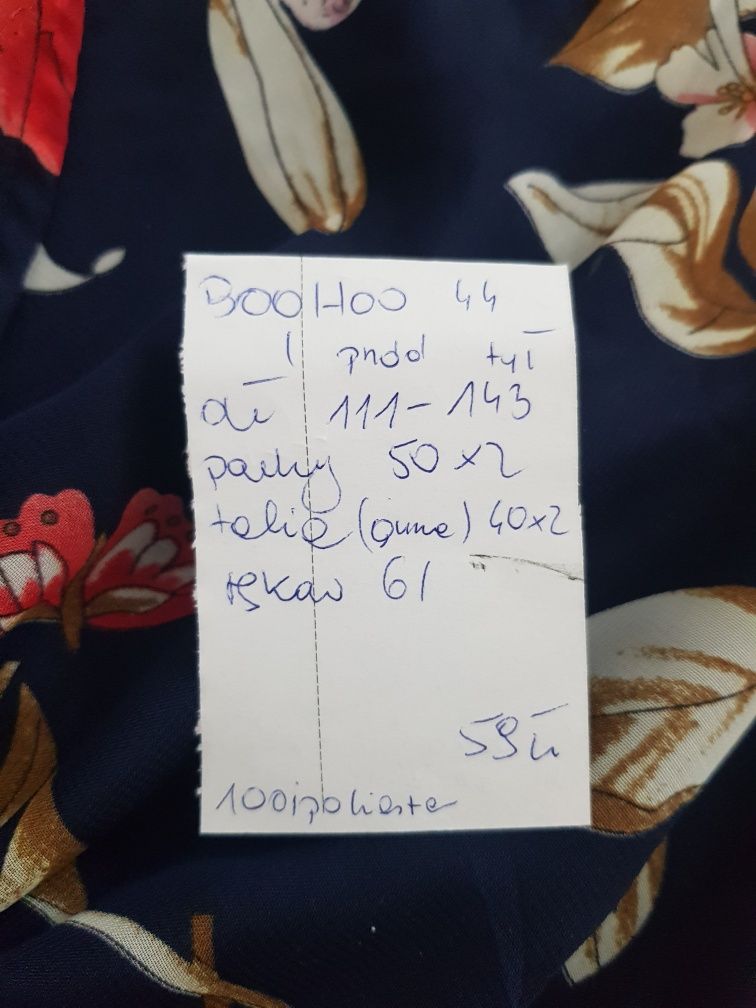 BOOHOO 44
przód tył
dł 111-143
pachy 50x2
talia (guma) 40x2
rękaw 61
59 zł
100% poliester